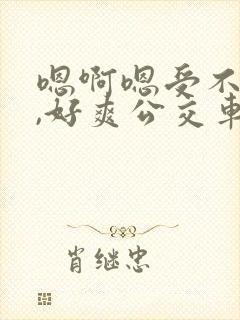 嗯啊嗯受不
,好爽公交车
肖继忠